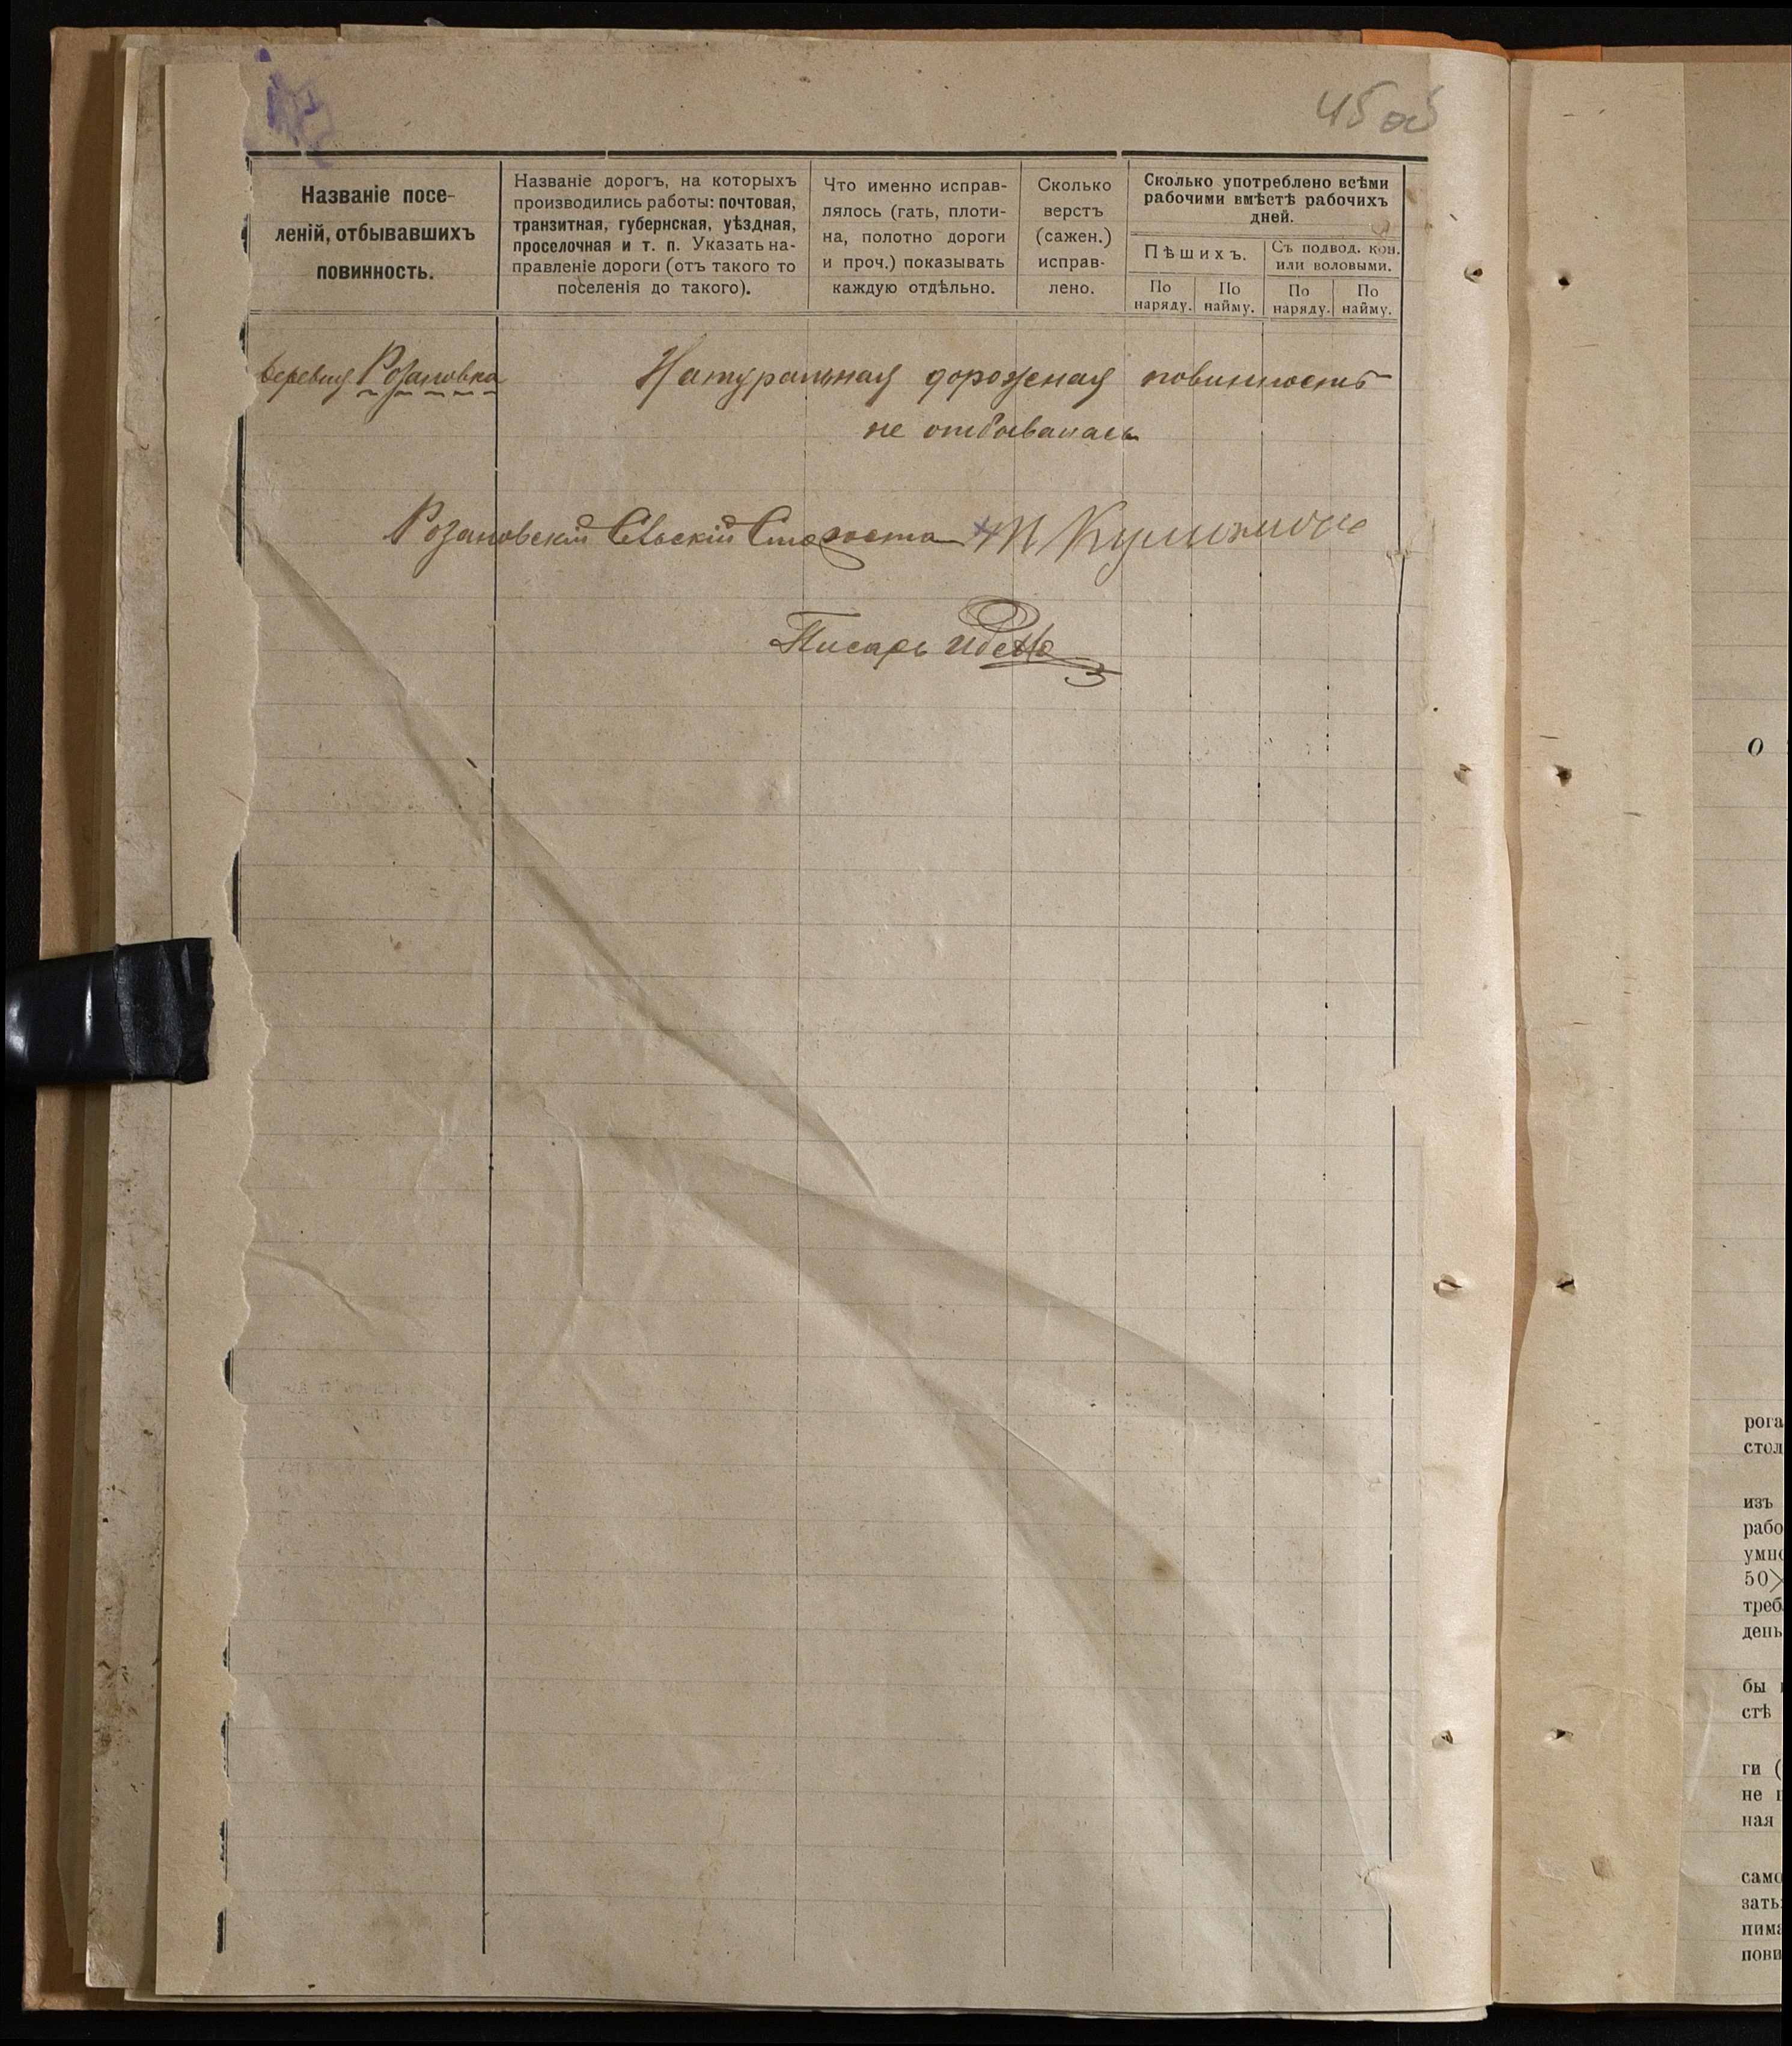 45 об
Названіе посе-
леній, отбывавшихъ
повинность.
Названіе дорогъ, на которыхъ
производились работы: почтовая,
транзитная, губернская, уѣздная,
проселочная и т. п. Указать на-
правленіе дороги (отъ такого то
поселенія до такого).
Что именно исправ-
лялось (гать, плоти-
на, полотно дороги
и проч.) показывать
каждую отдѣльно.
Сколько
верстъ
(сажен.)
исправ-
лено.
Сколько употреблено всѣми
рабочими вмѣстѣ рабочихъ
дней.
Пѣшихъ.
Съ подвод. кон.
или воловыми.
По
наряду.
По
найму.
По
наряду.
По
найму.
деревня Розановка
Натуральная дорожная повинность
не отбывалась
Розановскій Сельскій Староста
Писарь
О
рога
стол
изъ
рабо
умно
50×
треб
день
бы
стѣ
ги (
не
ная
само
зать
нима
пови